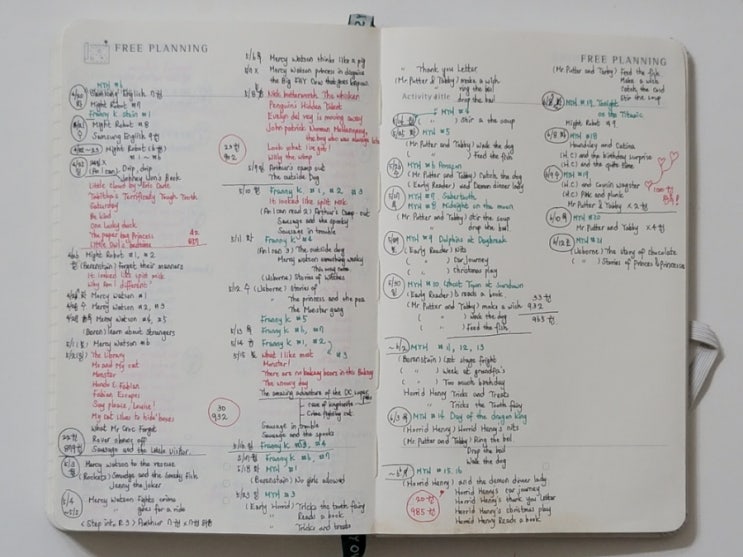 FREE PLANNING
MTH #6
Might Robot #7
Franny K. Stain #1
Might Robot #8
Samsung English 9권
Might Robot (6월)
#1 ~ #6
(An I Can) Drip, drip
Johnny Lion's Book
Little Cloud by Eric Carle
Tabitha's Terrifically Tough Tooth
Saturday
Be kind
One Lucky duck
The paper bag Princess
Might Robot #1, #2
(Berenstain) Forget their manners
It looked like spilt milk
Why Am I different
Mercy Watson #1
Mercy Watson #2, #3
Mercy Watson #4, #5
(Beren) learn about Strangers
5/1 Mercy Watson #6
5/2 The Library
Me and my cat
Monster
Hondo & Fabian
Fabian Escapes
Say please, Louise!
My cat likes to hide boxes
What My Croc Forget
Sausage and the Little Visitor
5/3 Mercy Watson to the rescue
(Rockets) Smudge and the Smelly Fish
Jenny the Joker
5/4 ~ 5/5 Mercy Watson Fights crime
" goes for a ride
5/6 Mercy Watson thinks like a pig
Mercy Watson princess in disguise
5/8 Nick Butterworth The Whisker
Penguin's Hidden Talent
Evelyn del rey is moving away
Look what I've got!
Willy the Wimp
5/9 Arthur's camp out
The outside Dog
5/10 Franny K #1, #2 #3
It looked like spilt milk
(An I can read 2) Arthur's Camp out
Sausage and the spooks
Sausage in trouble
5/11 Franny K #4
(An I can 3) The outside dog
Mercy Watson something wonky
This way comes
(Usborne) Stories of Witches
5/12 (Usborne) Stories of
" The princess and the pea
The Monster gang
Franny K #5
5/13 Franny K #6, #7
5/14 Franny K #1, #2
#3
5/15 What I like most
Monster!
There are no baking bears in this Bakery
The unruly dog
The amazing adventure of the DC super pets
- Crime fighting cat
30
932
Sausage in trouble
Sausage and the spooks
5/16 Franny K #3, #4
5/17 Franny K #6, #7
5/18 MTH #1
(Berenstain) No girls allowed
5/23 MTH #3
(Early Horrid) Tricks the tooth fairy
" Reads a book
" Tricks and treats
FREE PLANNING
" Thank you Letter
(Mr. Putter and Tabby) make a wish
ring the bell
Activity title drop the ball
MTH #4
( " ) Stir the soup
MTH #5
(Mr Putter and Tabby) Walk the dog
( " ) Feed the fish
MTH #6 Amazon
(Mr Putter and Tabby) Catch the dog
(Early Reader) and Demon dinner lady
MTH #7 Sabertooth
MTH #8 Midnight on the moon
(Mr Putter and Tabby) Stir the soup
" drop the ball
MTH #9 Dolphins at Daybreak
(Early Reader) Nits
( " ) Car Journey
( " ) Christmas play
MTH #10 Ghost Town at Sundown
(Early Reader) reads a book
(Mr Putter and Tabby) make a wish
( " ) walk the dog
( " ) feed the fish
33권
932
965권
~6/2 MTH #11, 12, 13
(Berenstain) Got stage fright
( " ) Week at grandpa's
( " ) Too much birthday
Horrid Henry Tricks and Treats
" Tricks the Tooth fairy
6/3 MTH #14 Day of the dragon king
(Horrid Henry) Horrid Henry's nits
(Mr. Putter and Tabby) Ring the bell
Drop the ball
Walk the dog
MTH #15, 16
(Horrid Henry) and the demon dinner lady
Horrid Henry's car journey
Horrid Henry's thank you letter
Horrid Henry's christmas play
Horrid Henry Reads a book
20권
985권
(Mr Putter and Tabby) Feed the fish
Make a wish
Catch the cold
Stir the soup
MTH #17, Tonight
on the Titanic
Might Robot #9
6/8 MTH #18
Houndsley and Catina
(H.C) and the birthday surprise
(H.C) and the quite time
6/9 MTH #19
(H.C) and cousin wagster
(H.C) Plink and plunk
(Mr Putter and Tabby) x 2권
6/10 MTH #20
Mr Putter and Tabby x 4권
MTH #21
(Usborne) The story of chocolate
( " ) Stories of Princes & Princesses